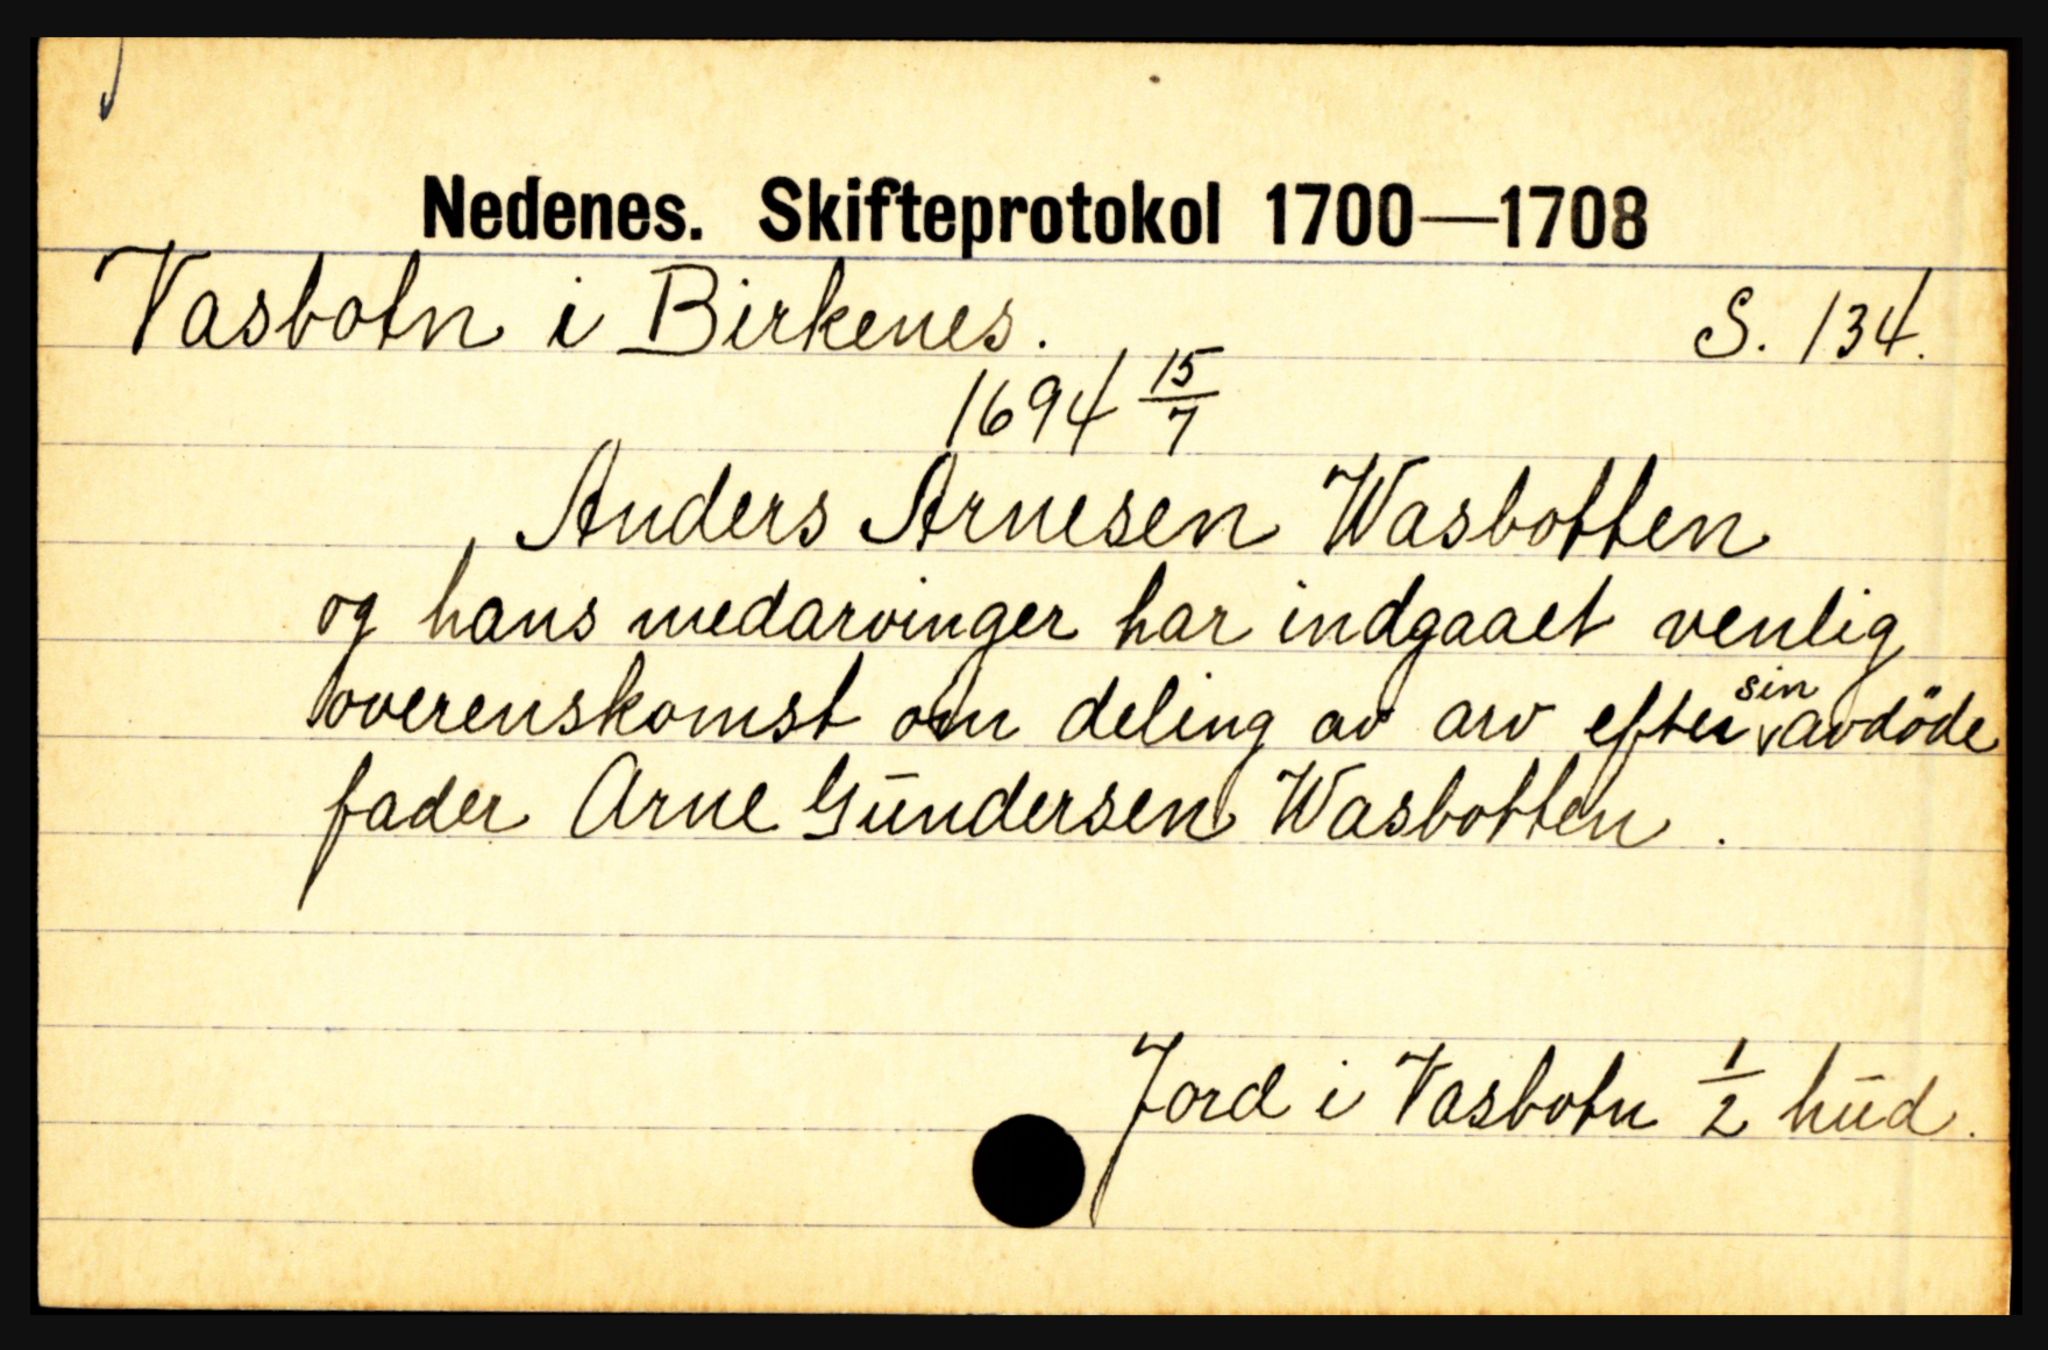 Nedenes. Skifteprotokol 1700—1708
Vasbotn i Birkenes. S. 134.
1694 15/7
Anders Arnesen Wasbotten
og hans medarvinger har indgaaet venlig
overenskomst om deling av arv efter sin avdöde
fader Arne Gūndersen Wasbotten.
Jord i Vasbotn 1/2 hūd.